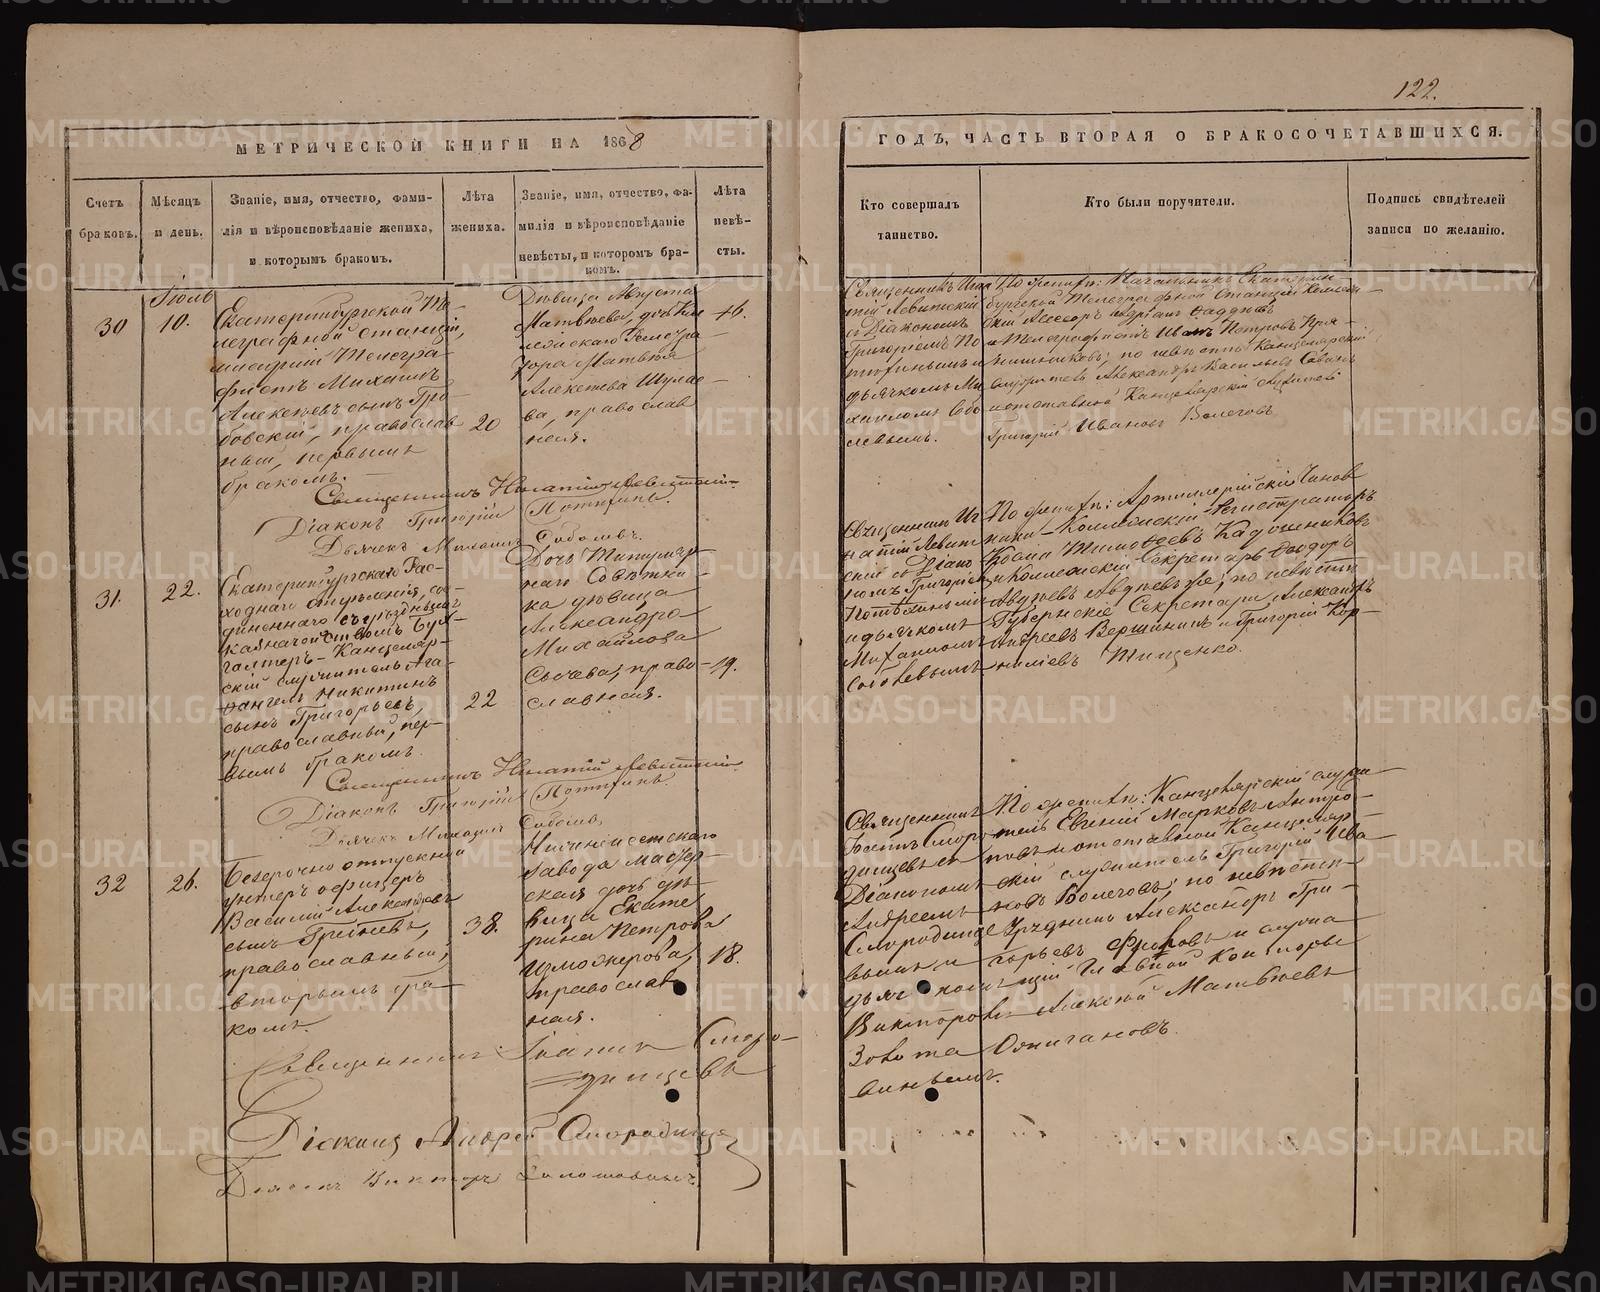 122.
МЕТРИЧЕСКОЙ КНИГИ НА 1868
ГОДЪ, ЧАСТЬ ВТОРАЯ О БРАКОСОЧЕТАВШИХСЯ.
Счетъ браковъ.
Мѣсяцъ и день.
Званіе, имя, отчество, фами-
лія и вѣроисповѣданіе жениха,
и которымъ бракомъ.
Лѣта жениха.
Званіе, имя, отчество, фа-
милія и вѣроисповѣданіе
невѣсты, и которомъ бра-
комъ.
Лѣта невѣ-
сты.
Кто совершалъ
таинство.
Кто были поручители.
Подпись свидѣтелей
записи по желанію.
Іюль
30
10.
Екатеринбургской Те-
леграфной станціи,
младшій Телегра-
фистъ Михаилъ
Алексѣевъ сынъ Гра-
бовскій, православ
ный, первымъ
бракомъ.
20
Дѣвица Августа
Матвѣева, дочь Кол
лежскаго Регистра
тора Матвѣя
Алексѣева Шула-
ва, православ
ная.
16.
Священникъ Игна
тій Левитскій
съ Діакономъ
Григоріемъ По
тѣхинымъ и
дьячкомъ Ми
хаиломъ Собо
левымъ.
По женихѣ: Начальникъ Екатерин-
бургской Телеграфной Станціи Коллеж-
скій Ассесоръ
и Телеграфистъ Иванъ Петровъ
по невѣстѣ: Канцелярскій
служитель Александръ Васильевъ
и отставной Канцелярскій служитель
Григорій Ивановъ Волеговъ
Священникъ Игнатій Левитскій.
Діаконъ Григорій Потѣхинъ.
Дьячекъ Михаилъ Соболевъ.
31.
22.
Екатеринбургскаго Рас-
ходнаго отдѣленія, со-
диненнаго съ уѣзднымъ
казначействомъ Бух-
галтеръ-Канцеляр-
скій служитель Ага-
фангелъ Никитинъ
сынъ Григорьевъ,
православный, пер-
вымъ бракомъ.
22
Дочь Титуляр-
наго Совѣтни-
ка дѣвица
Александра
Михайлова
Сычева, право-
славная.
19.
Священникъ Иг
натій Левит
скій съ Діако
номъ Григоріем
Потѣхинымъ
и дьячкомъ
Михаиломъ
Соболевымъ
По женихѣ: Артиллерійскій Чинов
никъ-Коллежскій Регистраторъ
Козма Тимофеевъ Кадочниковъ
и Коллежскій Секретарь Ѳеодоръ
Авдѣевъ по невѣстѣ
Губернскіе Секретари Александръ
Андреевъ Вершининъ и Григорій Кор-
ниліевъ Тищенко.
Священникъ Игнатій Левитскій.
Діаконъ Григорій Потѣхинъ.
Дьячекъ Михаилъ Соболевъ
32
26.
Безсрочно отпускной
унтеръ офицеръ
Василій Александровъ
сынъ Грибневъ,
православный,
вторымъ бра-
комъ.
38.
Нижнеисетскаго
завода мастер-
ская дочь дѣ-
вица Екате
рина Петрова
Изможерова,
православ
ная.
18.
Священникъ
Іоаннъ Сморо
динцевъ съ
Діакономъ
Андреемъ
Смородинце
вымъ и
дьяч
Викторомъ
Золота
виннымъ.
По женихѣ: Канцелярскій служи-
тель Евгеній Марковъ Антро-
повъ и отставной Канцеляр-
скій служитель Григорій Ива-
новъ Волеговъ; по невѣстѣ
Урядникъ Александръ Гри-
горьевъ Фроловъ и служа
щій Главной Конторы
Алексѣй Матвѣевъ
Ожигановъ.
Священникъ Іоаннъ Сморо-
динцевъ
Діаконъ Андрей Смородинцевъ
Дьячекъ Викторъ